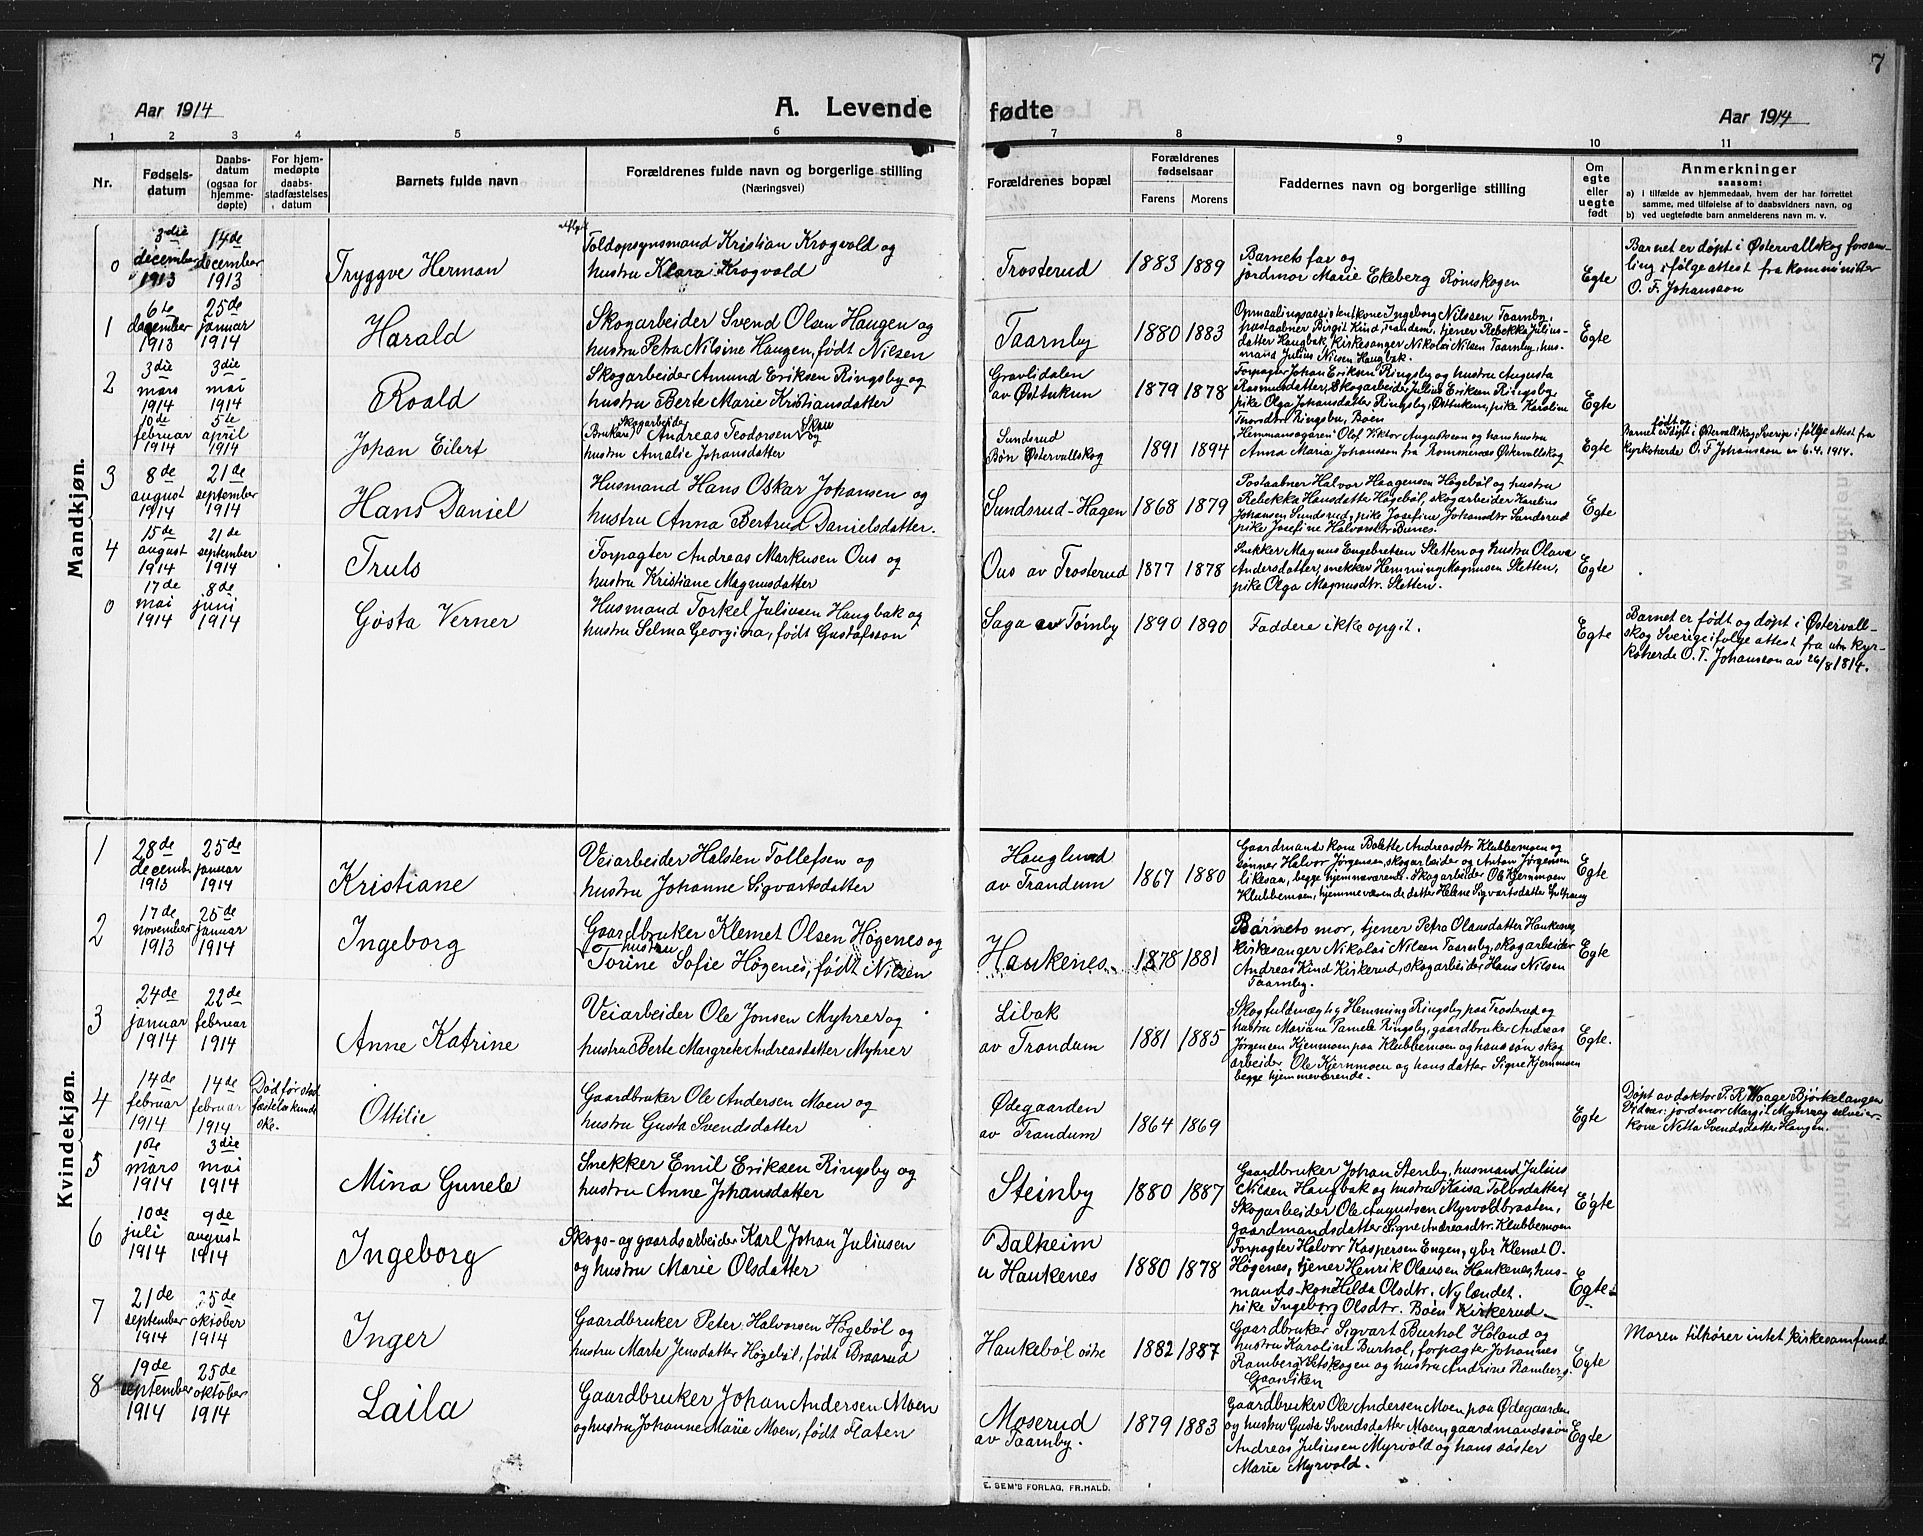 7
Aar 1914
A. Levende
fødte
Aar 1914
1 2 3 4 5 6 7 8 9 10 11
Nr.
Fødsels-
datum
Daabs-
datum
(ogsaa for
hjemme-
døpte)
For hjem-
medøpte
daabs-
stadfæstelses
datum
Barnets fulde navn
Forældrenes fulde navn og borgerlige stilling
(Næringsvei)
Forældrenes bopæl
Forældrenes
fødselsaar
Farens
Morens
Faddernes navn og borgerlige stilling
Om
egte
eller
uegte
født
Anmerkninger
saasom:
a) i tilfælde av hjemmedaab, hvem der har forrettet
samme, med tilføielse af to daabsvidners navn, og
b) ved uegtefødte barn anmelderens navn m. v.
Mandkjøn.
0
3die
december
1913
14de
december
1913
Tryggve Herman
Toldopsynsmand Kristian Krogvold og
hustru Klara Krogvold
Trosterud
1883
1889
Barnets far og
jordmor Marie Ekeberg Rømskogen
Egte
Barnet er døpt i Østervallskog forsam-
ling ifølge attest fra komminister
O. F. Johansson
1
6te
december
1913
25de
januar
1914
Harald
Skogarbeider Svend Olsen Haugen og
hustru Petra Nilsine Haugen, født Nilsen
Taarnby
1880
1883
Opmaalingsassistentkone Ingeborg Nilssen Taarnby,
postaabner Birgit Kind, Trandem, tjener Rebekka Julius-
datter Haugbak, kirkesanger Nikolai Nilsen Taarnby, hus-
mand Julius Nilsen Haugbak.
Egte
2
3die
mars
1914
3die
mai
1914
Roald
Skogarbeider Amund Eriksen Ringsby og
hustru Berte Marie Kristiansdatter
Gravlidalen
av Østtukun
1879
1878
Forpagter Johan Eriksen Ringsby og hustru Augusta
Rasmusdatter, Skogarbeider Julius Eriksen Ringsby,
pike Olga Johansdatter Ringsby, Østtukun, pike Karoline
Trondsdtr Ringsby, Bøen
Egte
10de
februar
1914
5te
april
1914
Johan Eilert
skogarbeider
Andreas Teodorsen
og
hustru Amalie Johansdatter
Sundsrud
Bøn Østervallskog
1891
1894
Hemmansägaren Olof Viktor Augustsson og hans hustru
Anna Maria Johansson fra Rommenæs Østervallskog
Egte
født og
Barnet er døpt i Østervallskog Sverige ifølge attest fra
kyrkoherde O. F. Johansson av 6.4.1914.
3
8de
august
1914
21de
september
1914
Hans Daniel
Husmand Hans Oskar Johansen og
hustru Anna Bertrud Danielsdatter.
Sundsrud-Hagen
1868
1879
Postaabner Halvor Haagensen Høgebøl og hustru
Rebekka Hansdatter Høgebøl, skogarbeider Karelius
Johansen Sundsrud, pike Josefine Johansdtr Sundsrud
pike Josefine Halvorsdtr Bunes.
Egte
4
15de
august
1914
21de
september
1914
Truls
Forpagter Andreas Markusen Ous og
hustru Kristiane Magnusdatter
Ous av Trosterud
1877
1878
Snekker Magnus Engebretsen Sletten og hustru Olava
Andersdatter, snekker Hemning Magnusen Sletten,
pike Olga Magnusdtr. Sletten.
Egte
0
17de
mai
1914
8de
juni
1914
Gøsta Verner
Husmand Torkel Juliusen Haugbak og
hustru Selma Georgina, født Gustafsson
Saga av Tørnby
1890
1890
Faddere ikke opgit.
Egte
Barnet er født og døpt i Østervall-
skog Sverige ifølge attest fra kyr-
koherde O. F. Johansson av 26/8 1814.
Kvindekjøn.
1
28de
decemb.
1913
25de
januar
1914
Kristiane
Veiarbeider Halsten Tollefsen og
hustru Johanne Sigvartsdatter
Hauglund
av Trandum
1867
1880
Gaardmands kone Bolette Andreasdtr Klubbemoen og
sønner Halvor Jørgensen, skogarbeider og Anton Jørgensen
likesaa, begge hjemmeværende. Skogarbeider Ole Kjernmoen
Klubbemoen, hjemmeværende datter Helene Sigvartsdatter
Egte
2
17de
november
1913
25de
januar
1914
Ingeborg
Gaardbruker Klemet Olsen Høgenes og
hustru
Torine Sofie Høgenes, født Nilsen
Haukenes
1878
1881
Barnets mor, tjener Petra Olausdatter Haukenes,
kirkesanger Nikolai Nilsen Taarnby, skogarbeider
Andreas Kind Kirkerud, skogarbeider Hans Nilsen
Taarnby.
Egte
3
24de
januar
1914
22de
februar
1914
Anne Katrine
Veiarbeider Ole Jonsen Myhrer og
hustru Berte Margrete Andreasdatter Myhrer
Libak
av Trandum
1881
1885
Skogfuldmægtig Hemming Ringsby paa Trosterud og
hustru Mariane Pamele Ringsby, gaardbruker Andreas
Jørgensen Kjernmoen paa Klubbemoen og hans søn skog
arbeider Ole Kjernmoen og hans datter Signe Kjernmoen
begge hjemmeværende.
Egte.
4
14de
februar
1914
14de
februar
1914
Død før stad
fæstelse kunde
ske.
Ottilie
Gaardbruker Ole Andersen Moen og
hustru Gusta Svendsdatter
Ødegaarden
av Trandum
1864
1869
Egte
Døpt av doktor P. R. Waage Bjørkelangen
Vidner: jordmor Margit Myhrer og selveier-
kone Netta Svendsdatter Haugen.
5
1ste
mars
1914
3die
mai
1914
Mina Gunele
Snekker Emil Eriksen Ringsby og
hustru Anne Johansdatter
Steinby
1880
1887
Gaardbruker Johan Stenby, husmand Julius
Nilsen Haugbak og hustru Kaisa Tolvsdatter,
Skogarbeider Ole Augustsen Myrvoldbraaten,
gaardmandsdatter Signe Andreasdtr. Klubbemoen
Egte
6
10de
juli
1914
9de
august
1914
Ingeborg
Skogs- og gaardsarbeider Karl Johan Juliusen
og hustru Marie Olsdatter
Dalheim
u Haukenes
1880
1878
Forpagter Halvor Kaspersen Engen, gbr Klemet O.
Høgenes, tjener Henrik Olausen Haukenes, hus-
mands-kone Hilda Olsdtr. Nylændet.
pike Ingeborg Olsdtr. Bøen Kirkerud.
Egte
7
21de
september
1914
25de
oktober
1914
Inger
Gaardbruker Peter Halvorsen Høgebøl og
hustru Marte Jensdatter Høgebøl, født Braarud
Haukebøl østre
1882
1887
Gaardbruker Sigvart Burhol Høland og
hustru Karoline Burhol, forpagter Johannes
Ramberg Setskogen og hustru Andrine Ramberg.
Gaasviken
Egte
Moren tilhører intet kirkesamfund
8
19de
september
1914
25de
oktober
1914
Laila
Gaardbruker Johan Andersen Moen
og hustru Johanne Marie Moen, født Flaten
Moserud
av Taarnby.
1879
1883
Gaardbruker Ole Andersen Moen paa Ødegaarden
og hustru Gusta Svendsdatter Moen, gaardmandssøn
Andreas Juliusen Myrvold og hans søster
Marie Myrvold.
Egte
E. SEM'S FORLAG, FR.HALD.